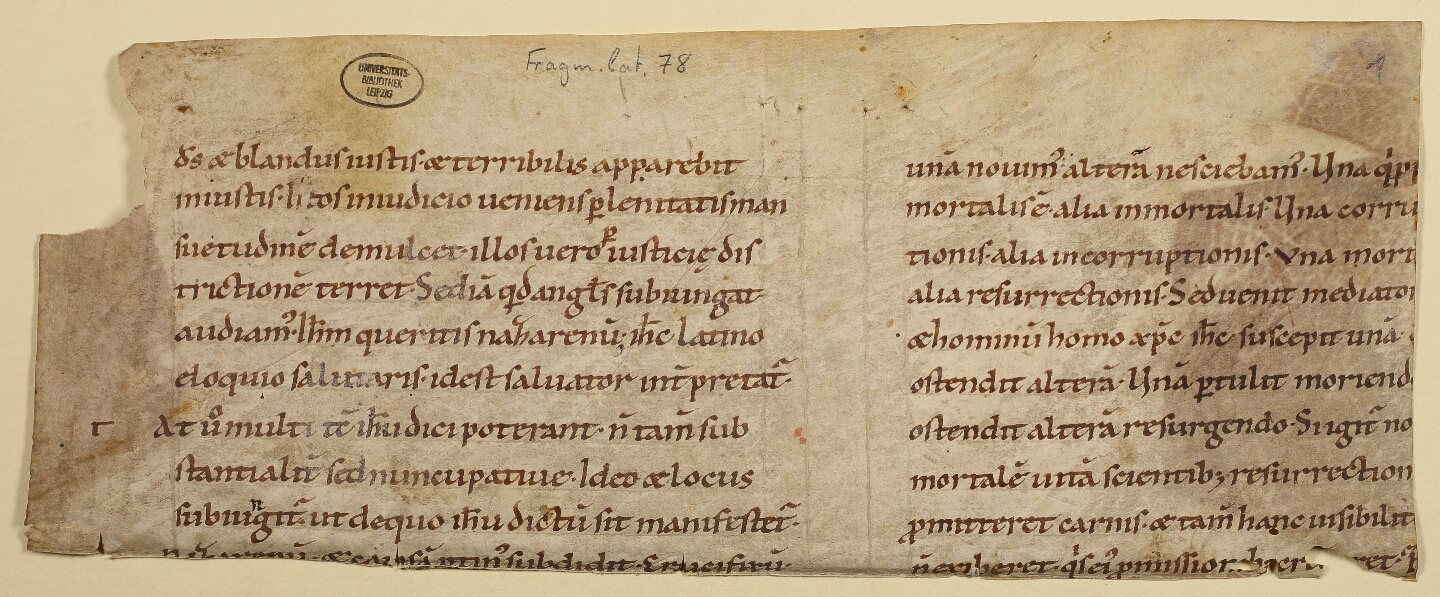 UNIVERSITÄTS-
BIBLIOTHEK
LEIPZIG
Fragm. lat. 78
1
ds æ blandus iustis· æ terribilis apparebit
iniustis· Istos in iudicio ueniens p̱ lenitatis man
suetudinē demulcet· illos uero ꝑ iusticię dis
trictionē terret· Sed iā qd angls subiungat
audiam᷒· Ihm queritis nazarenū; ihc latino
eloquio salutaris· id est saluator int̄pretat̄·
r
At ů multi tc̄ ihu dici poterant· n̄ tam̄ sub
stantialit̄ sed nuncupatiue· Ideo æ locus
subiungit̄· ut de quo ihu dictū sit manifestet̄·
nazarenū· æ causā ptin᷒ subdidit· Crucifixū
unā nouim᷒· alterā nesciebam᷒· Una q̇pp
mortalis ē· alia inmortalis· Una corru
tionis· alia incorruptionis· Vna mort
alia resurrectionis· Sed uenit mediator
æ hominū homo xp̄c ihc· suscepit unā·
ostendit alterā· Unā ꝑtulit moriend
ostendit alterā resurgendo· Si igit̄ no
mortalē uitā scientib; resurrection
ꝓmitteret carnis· æ tam̄ hanc uisibilit
n̄ exiberet· q̇s ei ꝓmissio